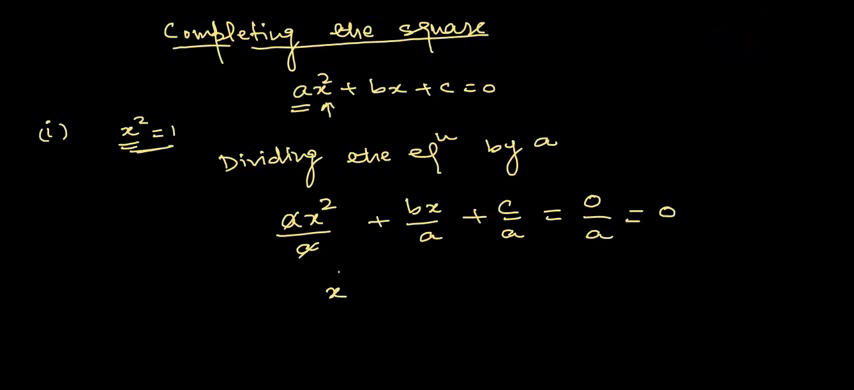 Completing the square
ax² + bx + c = 0
(i) x² = 1
Dividing the eqⁿ by a
ax²/a + bx/a + c/a = 0/a = 0
x